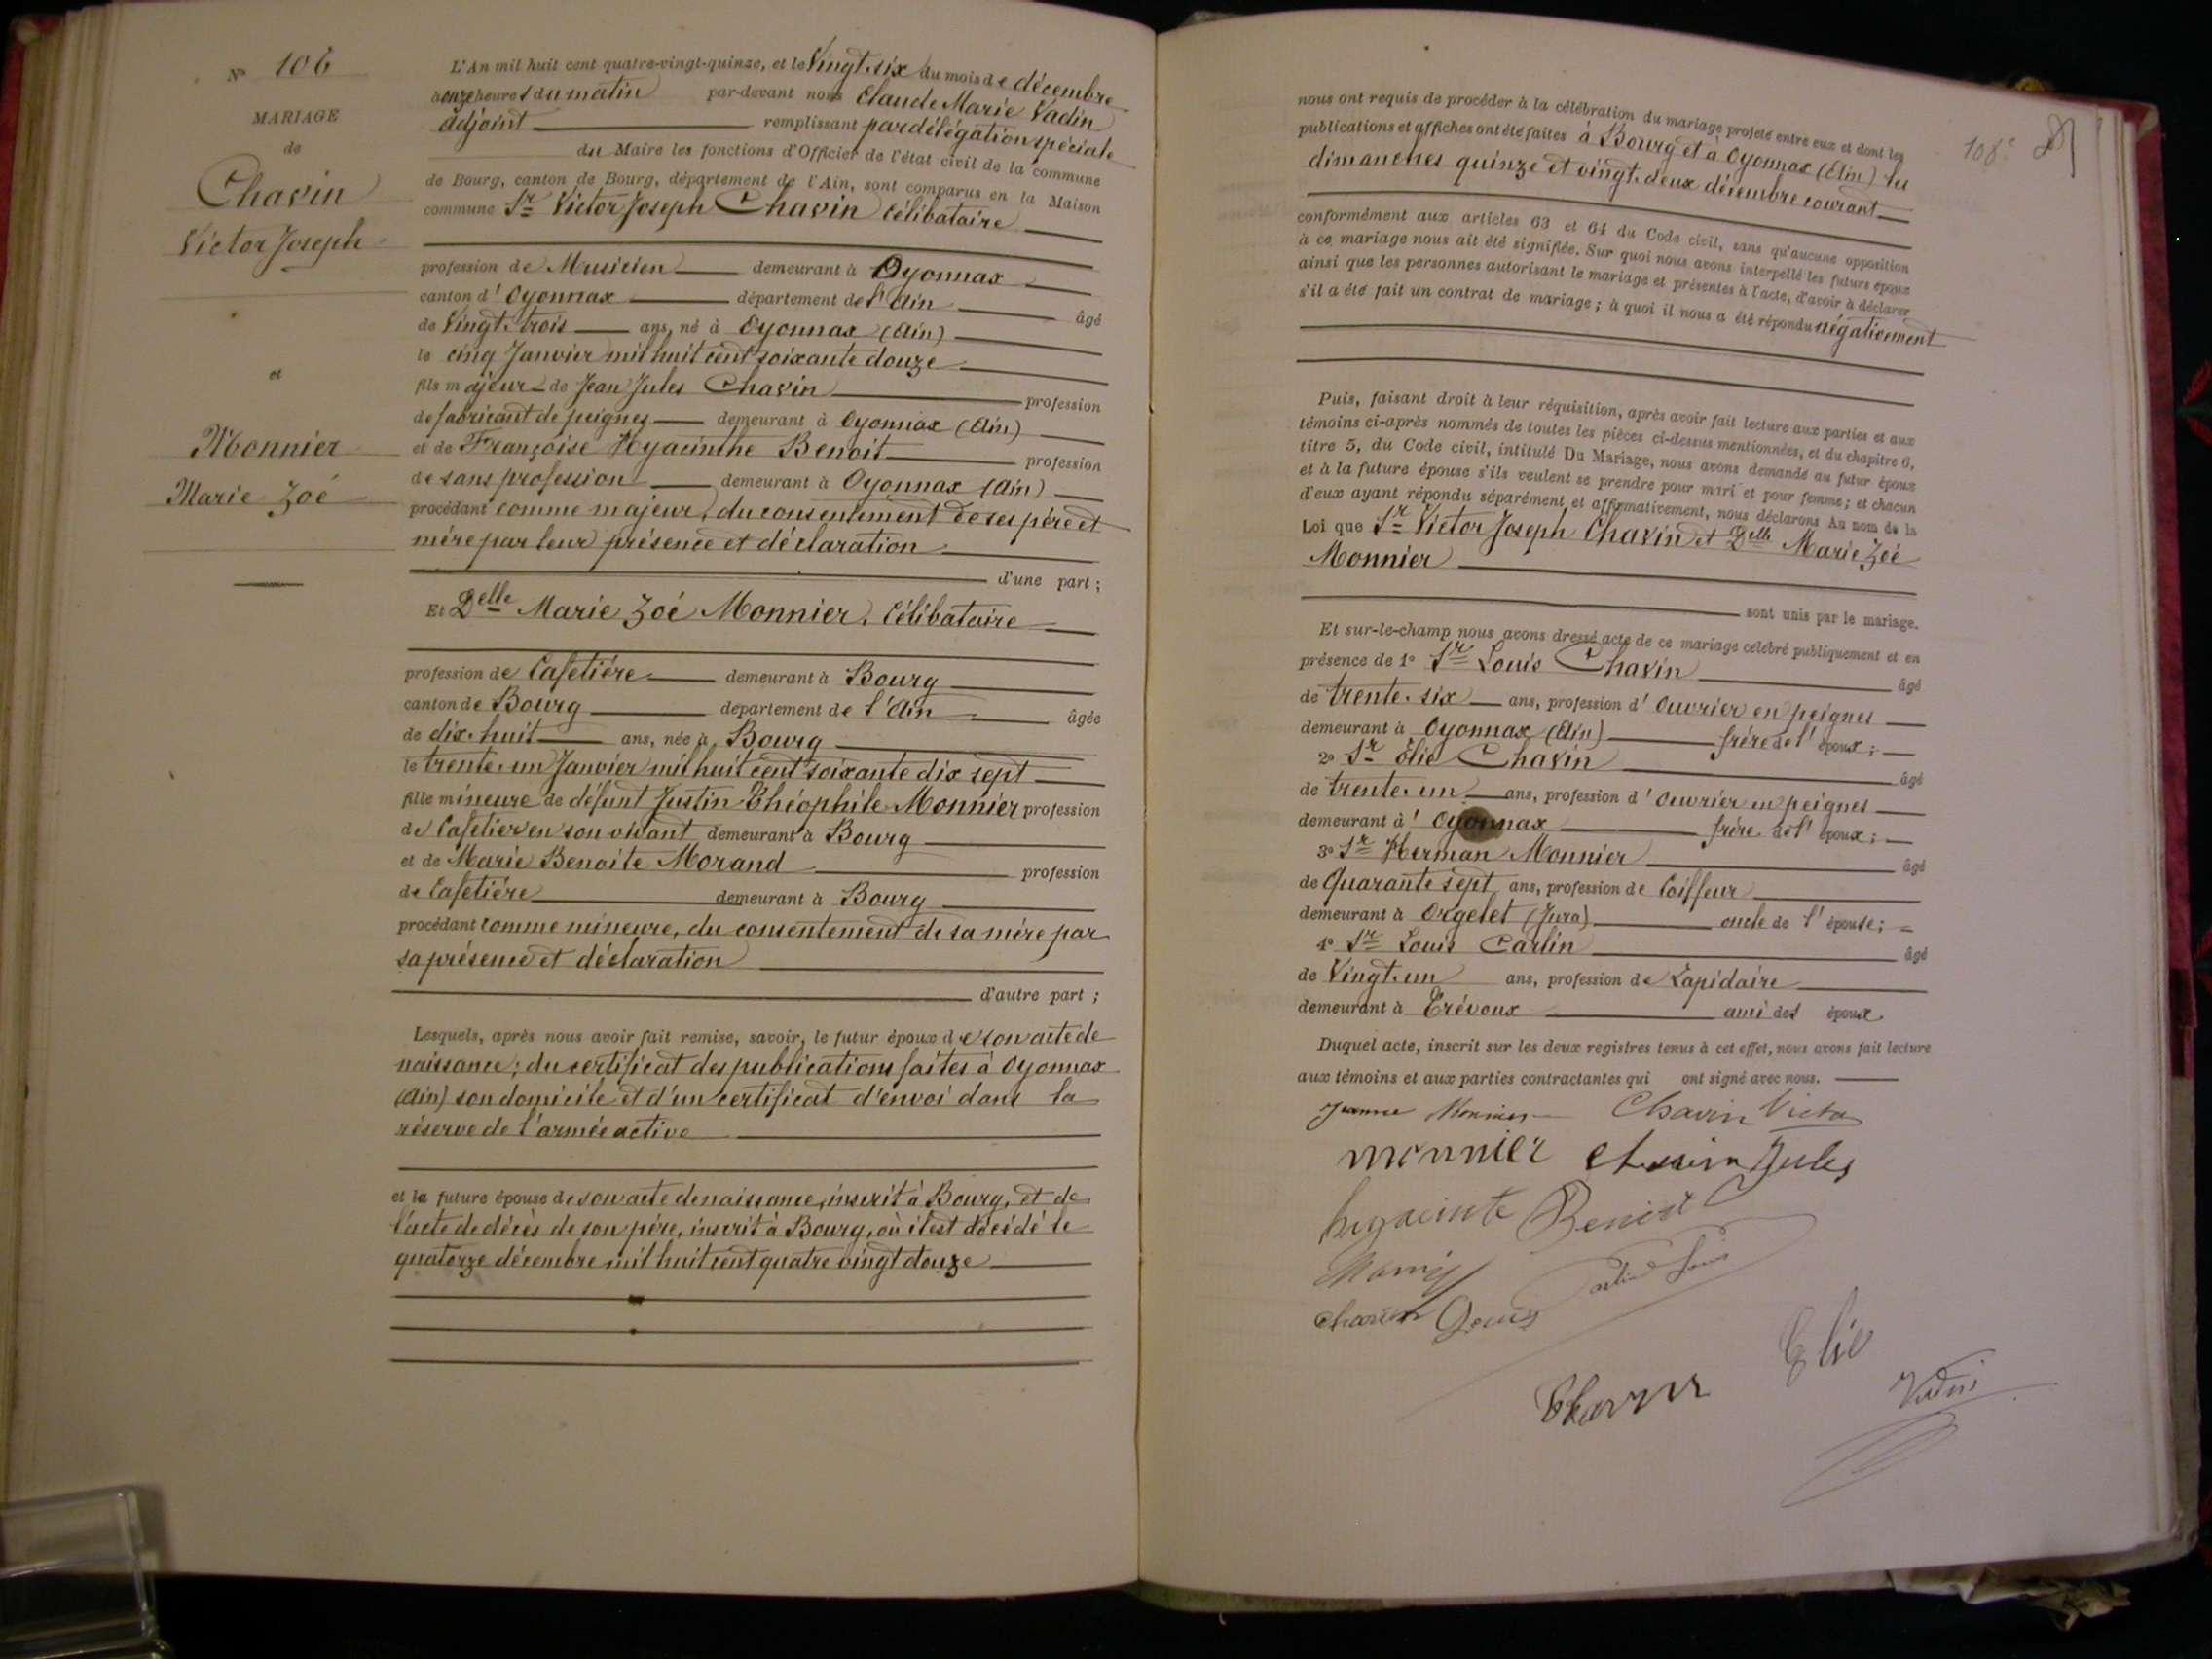 N° 106
MARIAGE
de
Chavin
Victor Joseph
et
Monnier
Marie Zoé
L'An mil huit cent quatre-vingt-quinze, et le Vingt-six du mois de décembre
à onze heures du matin par-devant nous Claude Marie Vadin
adjoint remplissant par délégation spéciale
du Maire les fonctions d'Officier de l'état civil de la commune
de Bourg, canton de Bourg, département de l'Ain, sont comparus en la Maison
commune Sr Victor Joseph Chavin célibataire
profession de Musicien demeurant à Oyonnax
canton d'Oyonnax département de l'Ain âgé
de Vingt-trois ans, né à Oyonnax (Ain)
le cinq Janvier mil huit cent soixante douze
fils majeur de Jean Jules Chavin profession
de fabricant de peignes demeurant à Oyonnax (Ain)
et de Françoise Hyacinthe Benoit profession
de sans profession demeurant à Oyonnax (Ain)
procédant comme majeur, du consentement de ses père et
mère par leur présence et déclaration
d'une part ;
Et Delle Marie Zoé Monnier, Célibataire
profession de Cafetière demeurant à Bourg
canton de Bourg département de l'Ain âgée
de dix-huit ans, née à Bourg
le trente-un Janvier mil huit cent soixante dix sept
fille mineure de défunt Justin Théophile Monnier profession
de Cafetier en son vivant demeurant à Bourg
et de Marie Benoite Morand profession
de Cafetière demeurant à Bourg
procédant comme mineure, du consentement de sa mère par
sa présence et déclaration
d'autre part ;
Lesquels, après nous avoir fait remise, savoir, le futur époux de son acte de
naissance ; du certificat des publications faites à Oyonnax
(Ain) son domicile et d'un certificat d'envoi dans la
réserve de l'armée active
et la future épouse de son acte de naissance, inscrit à Bourg, et de
l'acte de décès de son père, inscrit à Bourg, où il est décédé le
quatorze décembre mil huit cent quatre vingt douze
106e
nous ont requis de procéder à la célébration du mariage projeté entre eux et dont les
publications et affiches ont été faites à Bourg et à Oyonnax (Ain) les
dimanches quinze et vingt-deux décembre courant
conformément aux articles 63 et 64 du Code civil, sans qu'aucune opposition
à ce mariage nous ait été signifiée. Sur quoi nous avons interpellé les futurs époux
ainsi que les personnes autorisant le mariage et présentes à l'acte, d'avoir à déclarer
s'il a été fait un contrat de mariage ; à quoi il nous a été répondu négativement
Puis, faisant droit à leur réquisition, après avoir fait lecture aux parties et aux
témoins ci-après nommés de toutes les pièces ci-dessus mentionnées, et du chapitre 6,
titre 5, du Code civil, intitulé Du Mariage, nous avons demandé au futur époux
et à la future épouse s'ils veulent se prendre pour mari et pour femme ; et chacun
d'eux ayant répondu séparément et affirmativement, nous déclarons Au nom de la
Loi que Sr Victor Joseph Chavin et Delle Marie Zoé
Monnier
sont unis par le mariage.
Et sur-le-champ nous avons dressé acte de ce mariage célébré publiquement et en
présence de 1° Sr Louis Chavin âgé
de trente-six ans, profession d'Ouvrier en peignes
demeurant à Oyonnax (Ain) frère de l'époux ;
2° Sr Elie Chavin âgé
de trente-un ans, profession d'Ouvrier en peignes
demeurant à Oyonnax frère de l'époux ;
3° Sr Herman Monnier âgé
de Quarante sept ans, profession de Coiffeur
demeurant à Orgelet (Jura) oncle de l'épouse ;
4° Sr Louis Carlin âgé
de Vingt-un ans, profession de Lapidaire
demeurant à Trévoux ami des époux
Duquel acte, inscrit sur les deux registres tenus à cet effet, nous avons fait lecture
aux témoins et aux parties contractantes qui ont signé avec nous.
Monnier Chavin Victor
monnier chavin Jules
hyacinte Benoit
chavin Louis
Elie
Chavin
Vadin